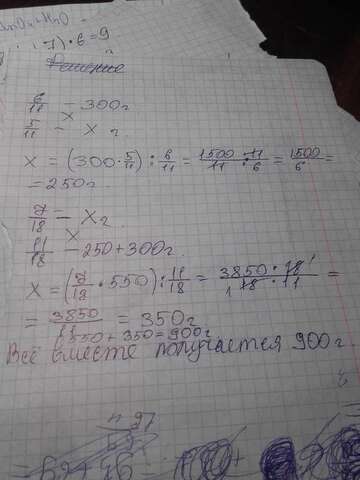 7)·6=9
Решение
6/11 — 300г
x
5/11 — x г
x = (300·5/11) : 6/11 = 1500/11 · 11/6 = 1500/6 =
= 250г.
7/18 — xг
x
11/18 — 250+300г
x = (7/18 · 550) : 11/18 = 3850·18/18·11 =
= 3850/11 = 350г
550 + 350 = 900г
Всё вместе получается 900г